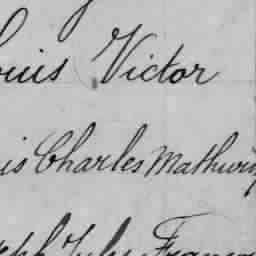 ouis Victor
is Charles Mathurin
eph Jules François